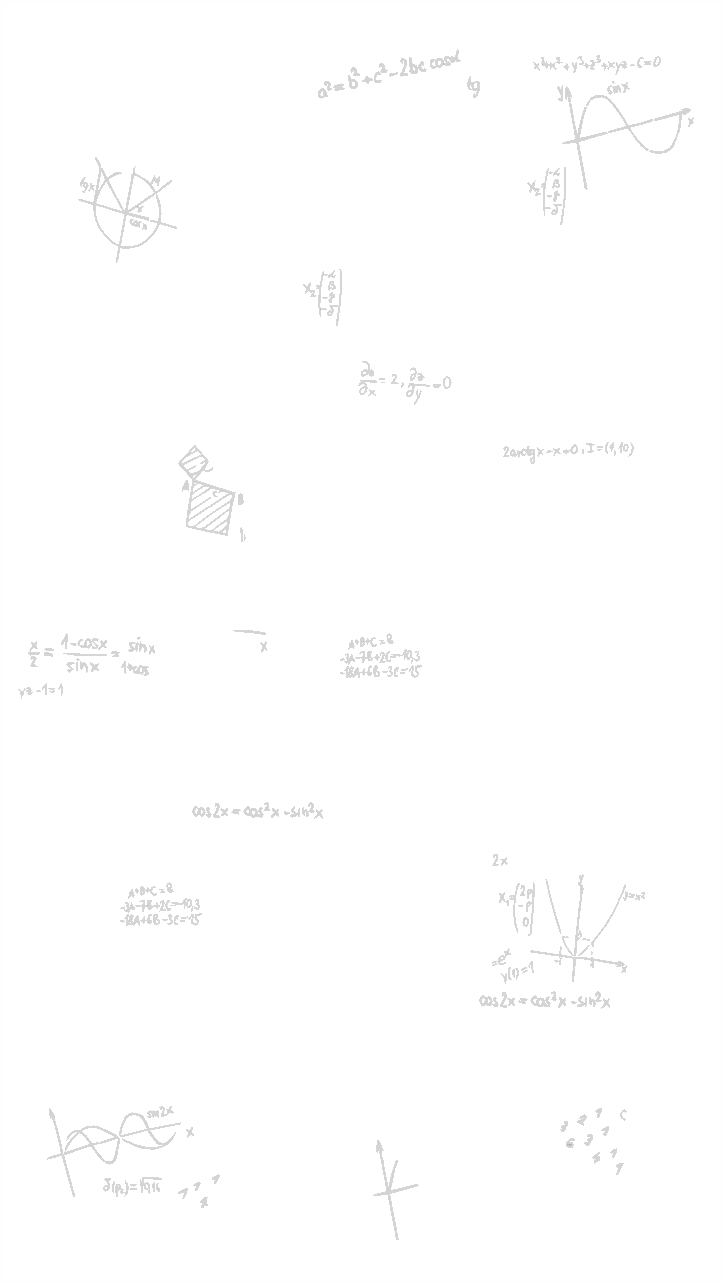 a² = b² + c² - 2bc cosα
tg
sin x
y
x
tg x
cos x
x
X₂=
-α
β
-γ
-δ
X₂=
-α
β
-γ
-δ
= 2, ∂z/∂y = 0
2arctgx - x = 0, I = (1, 10)
A
c
B
x/2 = 1-cosx/sinx = sinx/1+cos
x
A+B+C=8
-3A-7B+2C=-10,3
-18A+6B-3C=15
yz - 1 = 1
cos2x = cos²x - sin²x
2x
A+B+C=8
-3A-7B+2C=-10,3
-18A+6B-3C=15
X₁=
2p
-p
0
y
y=x²
x
=eˣ
y(1)=1
cos2x = cos²x - sin²x
sin2x
x
C